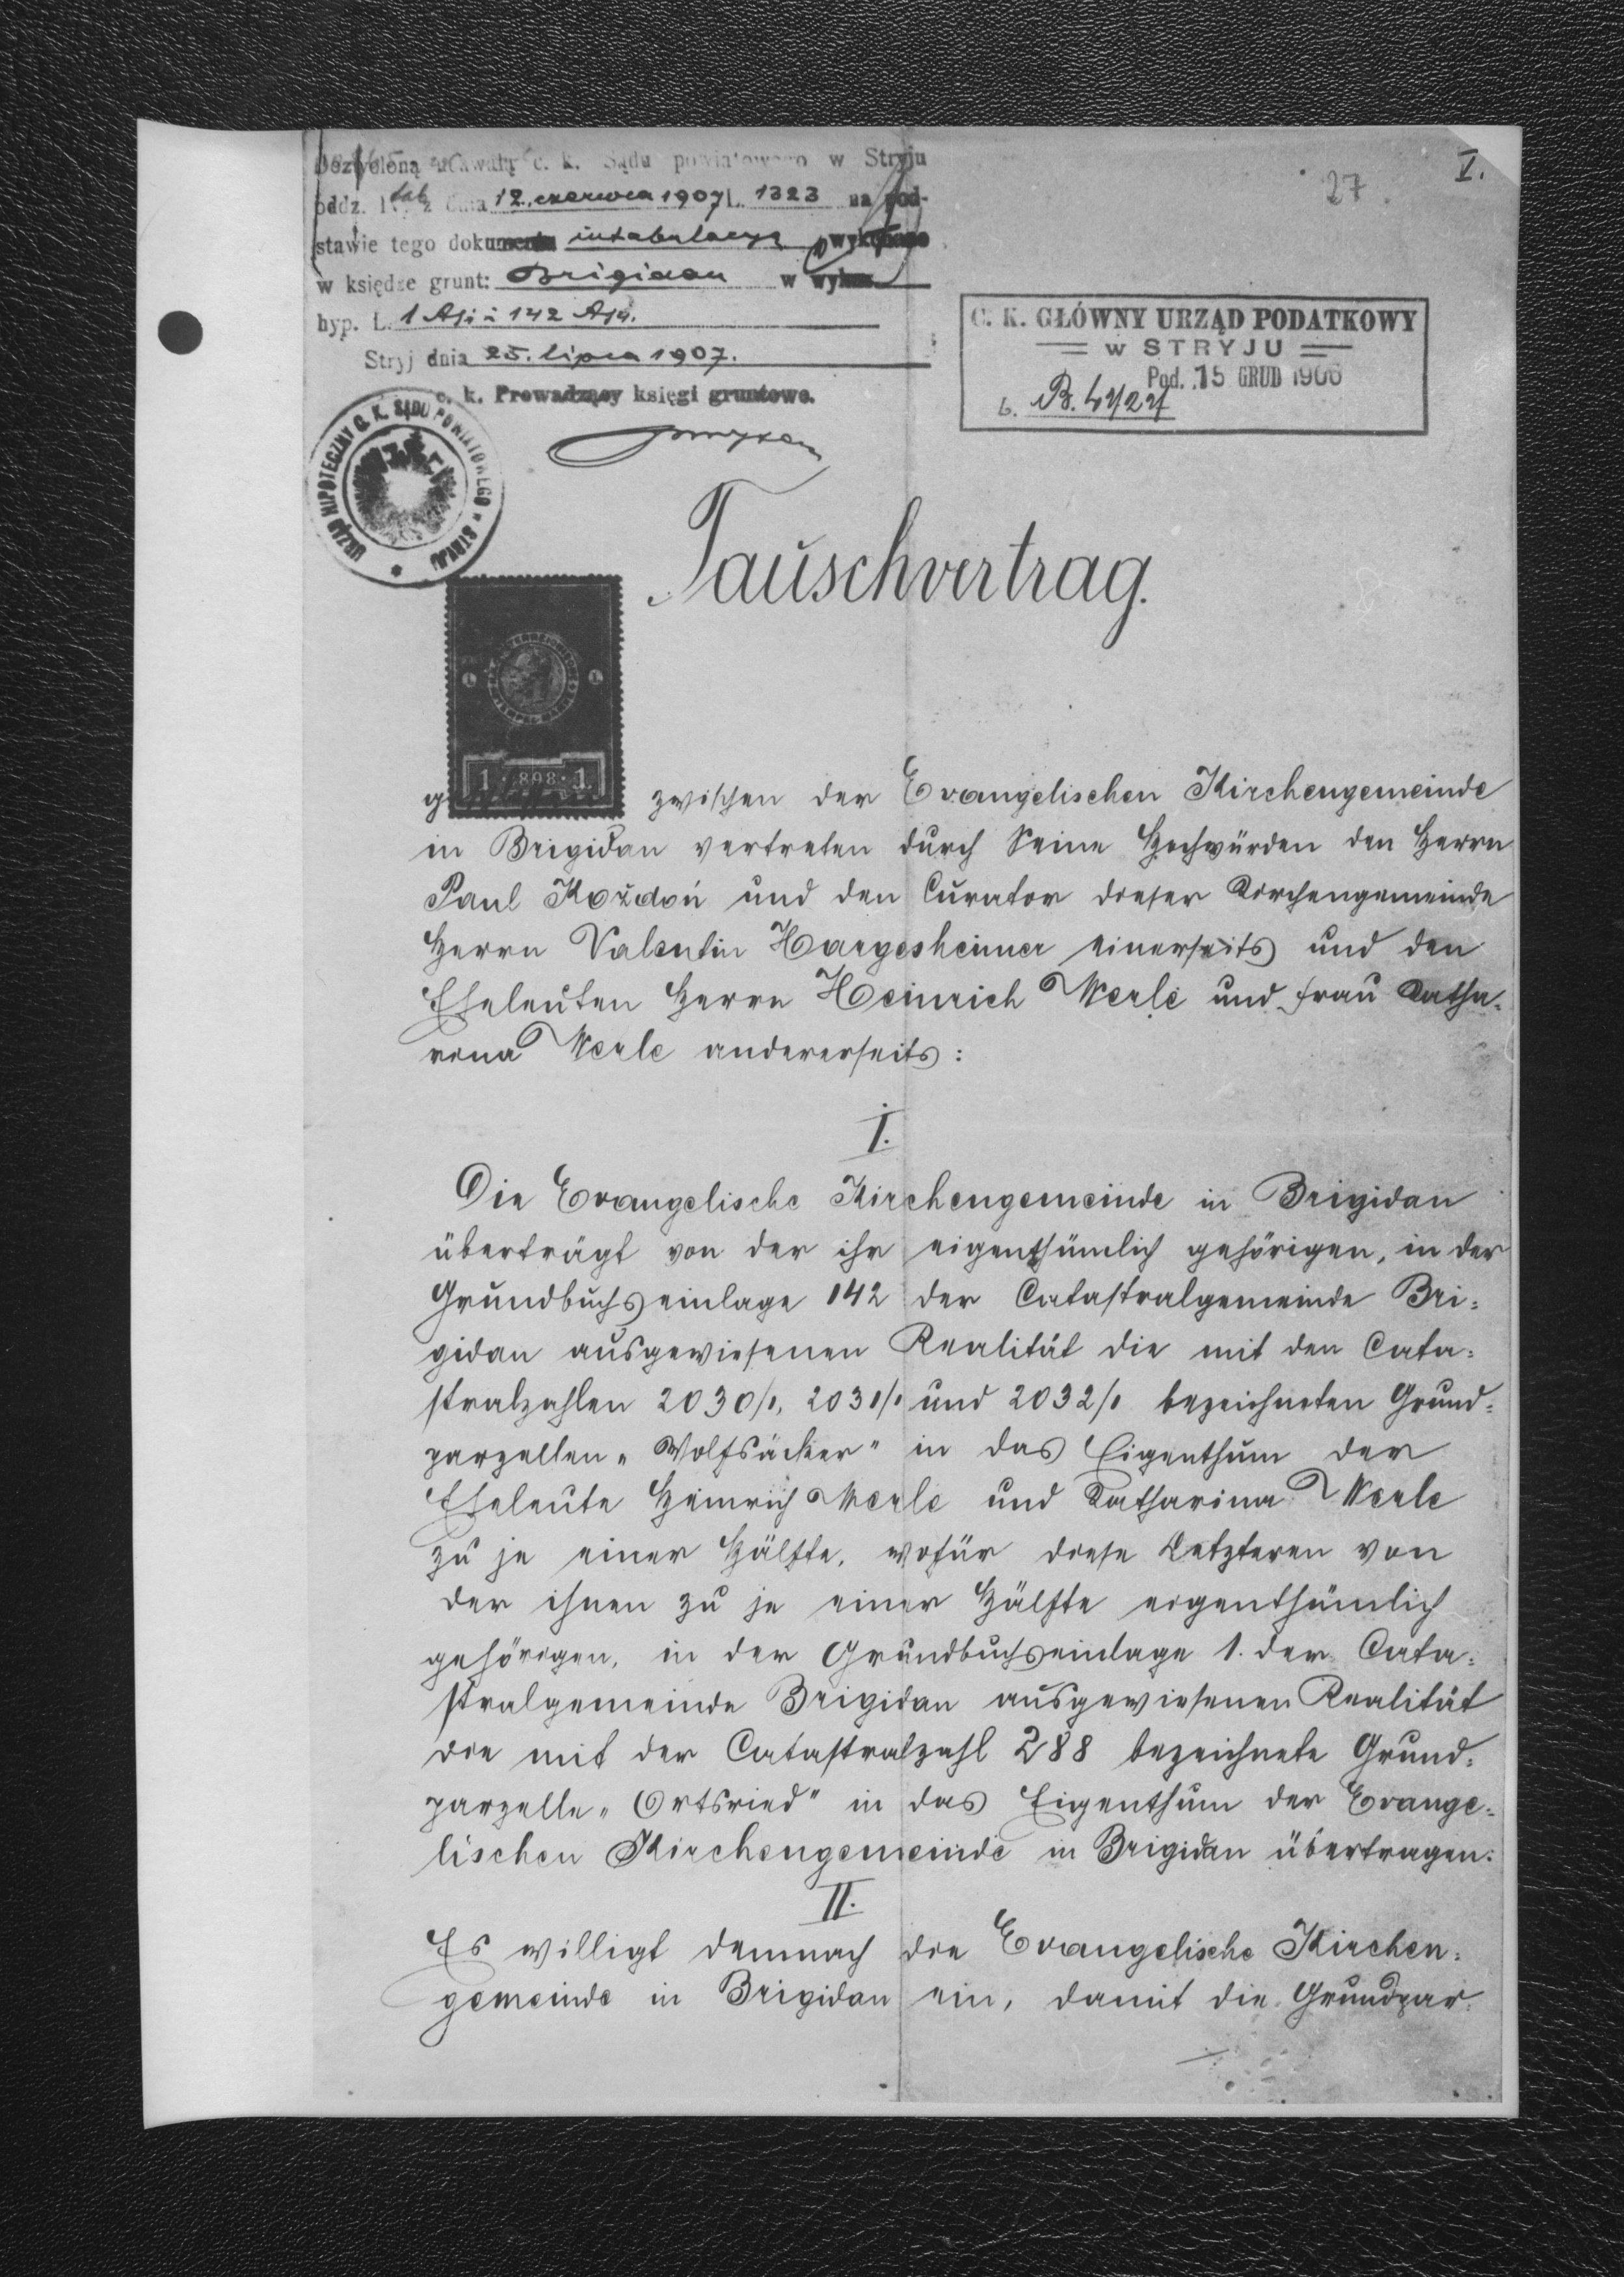 Dozwoloną uchwałą c. k. Sądu powiatowego w Stryju
oddz. z dnia 12. czerwca 1907 L. 1323 na pod-
stawie tego dokumentu intabulacyę wykonano
w księdze grunt: Brigidau w wykaz.
hyp. L. 1 i 142
Stryj dnia 25. lipca 1907.
c. k. Prowadzący księgi gruntowe.
URZĄD HIPOTECZNY C. K. SĄDU POWIATOWEGO w STRYJU
27.
V.
C. K. GŁÓWNY URZĄD PODATKOWY
w STRYJU
Pod. 15 GRUD 1906
Tauschvertrag.
1 · 898 · 1
zwischen der Evangelischen Kirchengemeinde
in Brigidau vertreten durch Seine Hochwürden den Herrn
Paul Kożdoń und den Curator dieser Kirchengemeinde
Herrn Valentin Hargesheimer einerseits und den
Eheleuten Herrn Heinrich Werle und Frau Katha-
rina Werle andererseits:
I.
Die Evangelische Kirchengemeinde in Brigidau
überträgt von der ihr eigenthümlich gehörigen, in der
Grundbuchseinlage 142 der Catastralgemeinde Bri-
gidau ausgewiesenen Realität die mit den Cata-
stralzahlen 2030/1, 2031/1 und 2032/1 bezeichneten Grund-
parzellen „Wolfsäcker" in das Eigenthum der
Eheleute Heinrich Werle und Katharina Werle
zu je einer Hälfte, wofür diese Letzteren von
der ihnen zu je einer Hälfte eigenthümlich
gehörigen, in der Grundbuchseinlage 1. der Cata-
stralgemeinde Brigidau ausgewiesenen Realität
die mit der Catastralzahl 288 bezeichnete Grund-
parzelle „Ortsried" in das Eigenthum der Evange-
lischen Kirchengemeinde in Brigidau übertragen.
II.
Es willigt demnach die Evangelische Kirchen-
gemeinde in Brigidau ein, damit die Grundpar-